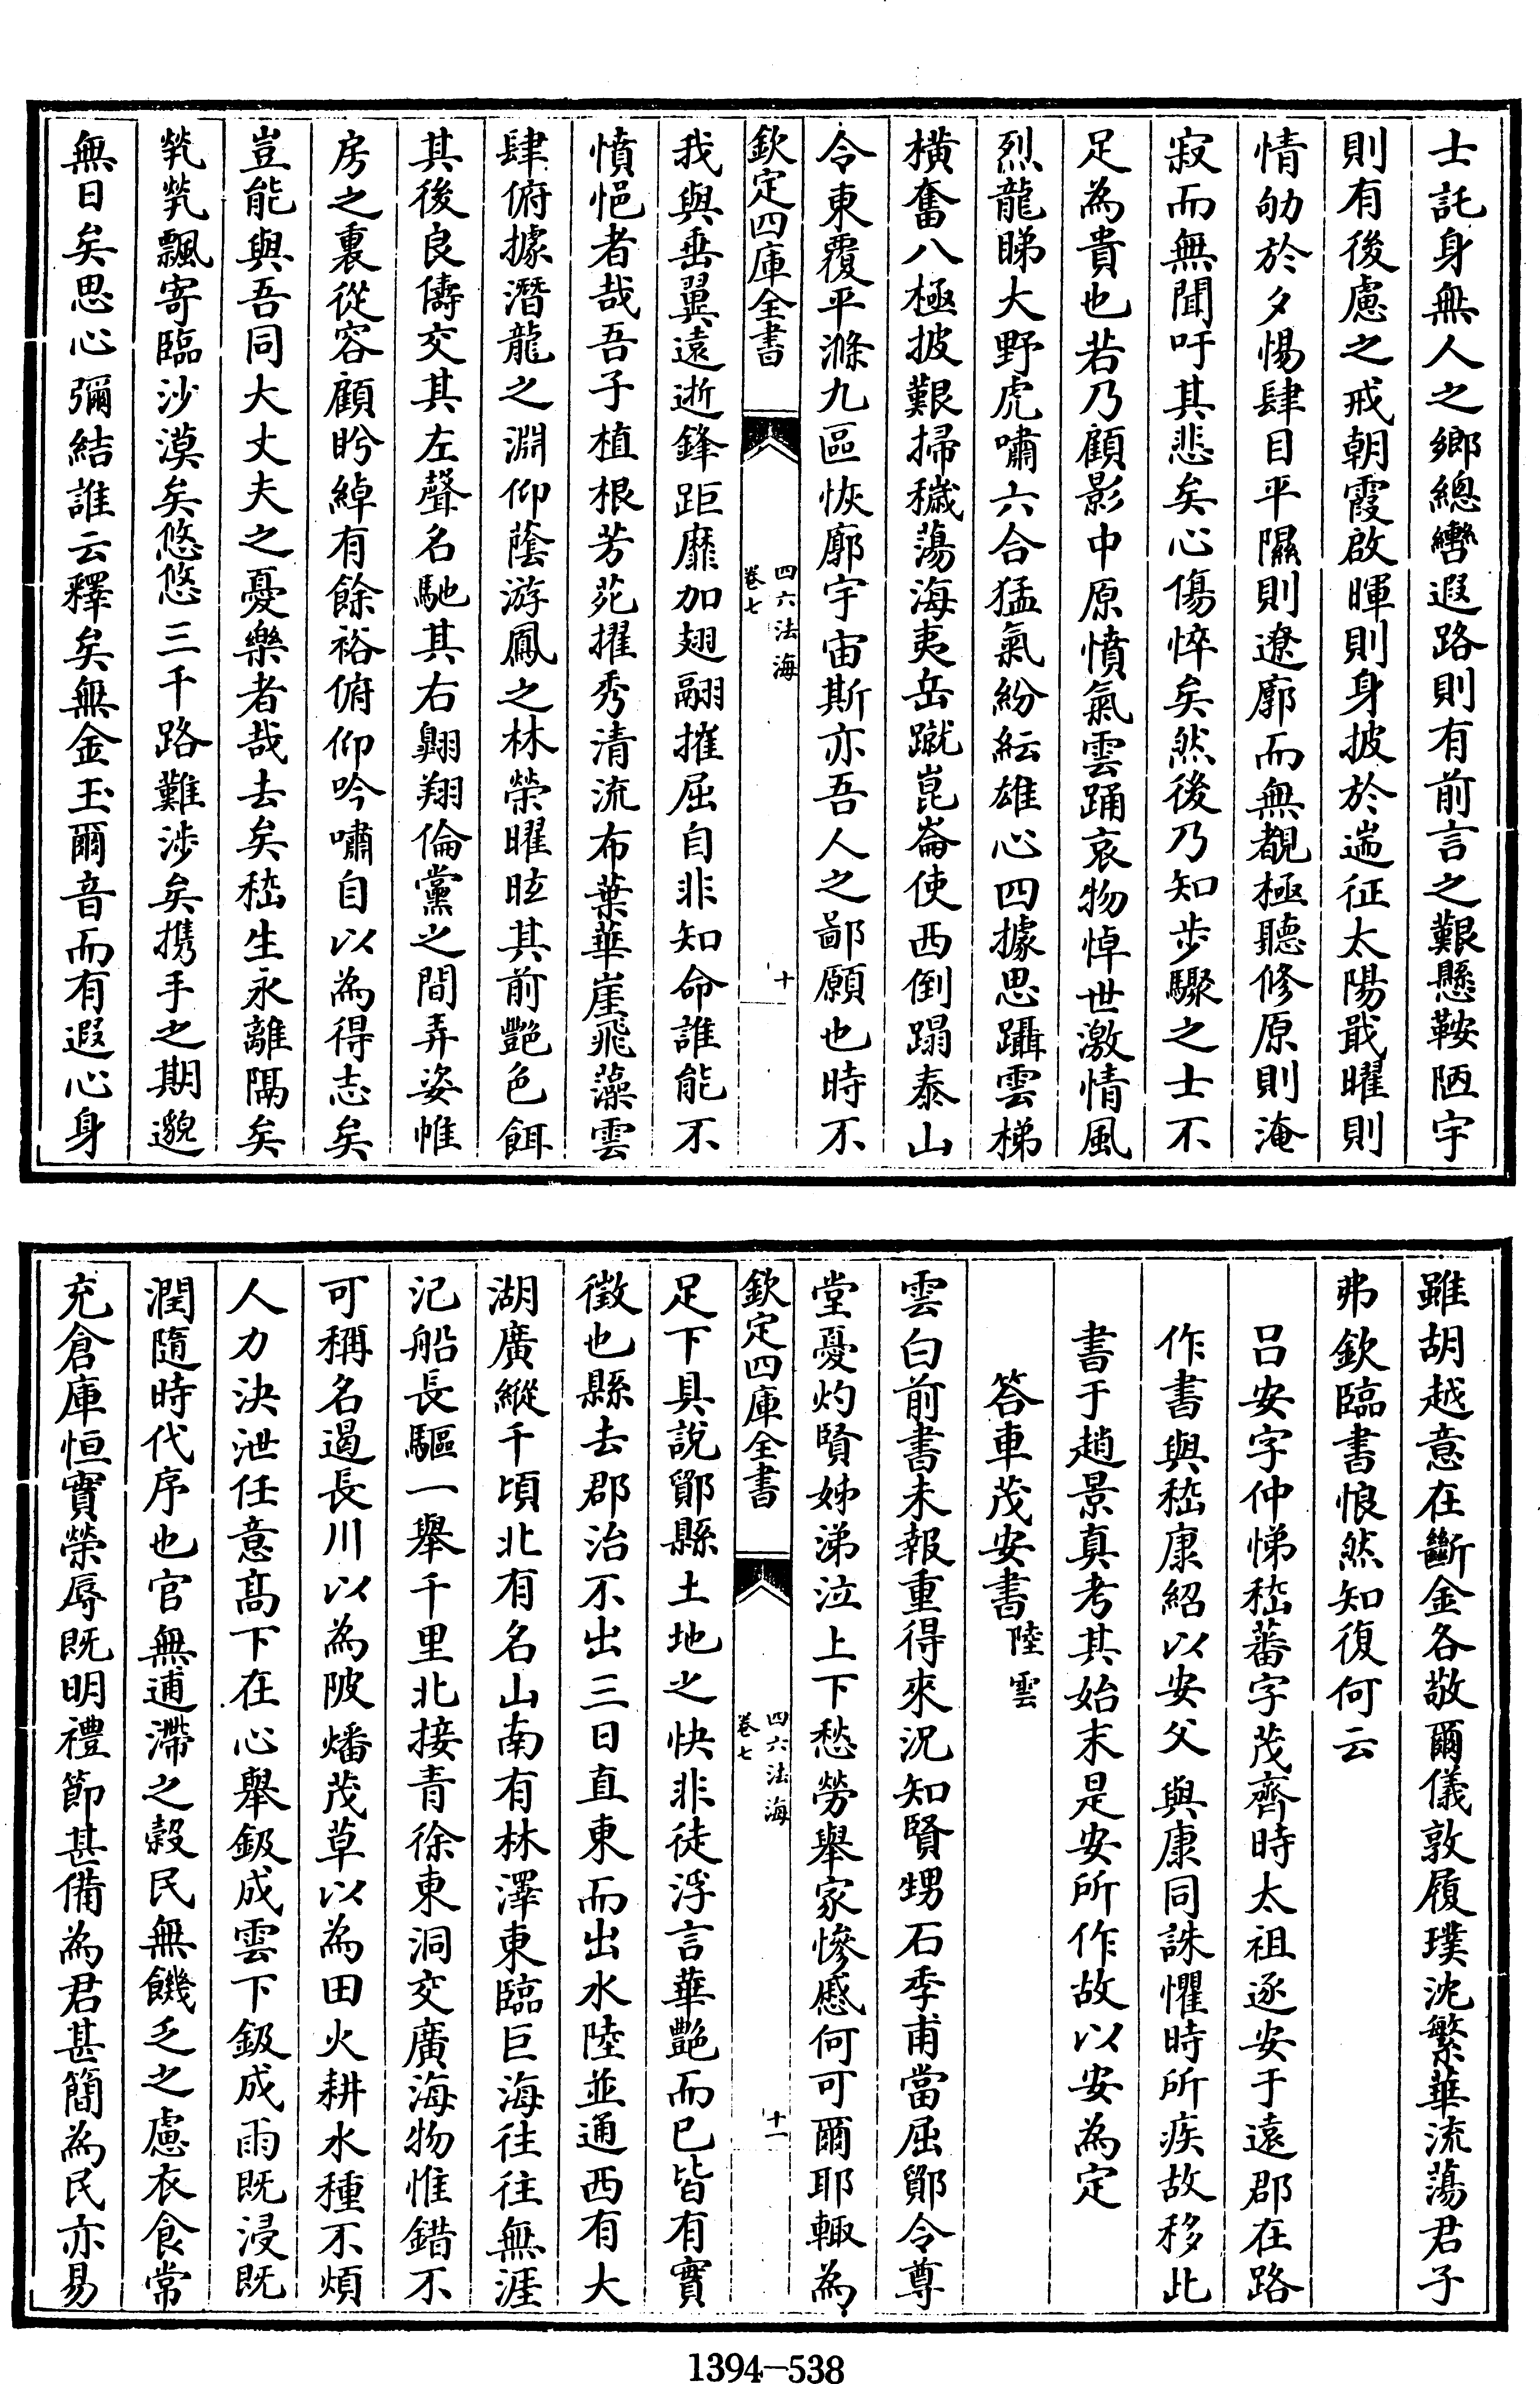 士託身無人之鄉總轡遐路則有前言之艱懸鞍陋宇
則有後慮之戒朝霞啟暉則身披於遄征太陽戢曜則
情劬於夕惕肆目平隰則遼廓而無覩極聽修原則淹
寂而無聞吁其悲矣心傷悴矣然後乃知步驟之士不
足為貴也若乃顧影中原憤氣雲踊哀物悼世激情風
烈龍睇大野虎嘯六合猛氣紛紜雄心四據思躡雲梯
橫奮八極披艱掃穢蕩海夷岳蹴崑崙使西倒蹋泰山
令東覆平滌九區恢廓宇宙斯亦吾人之鄙願也時不
欽定四庫全書
四六法海
卷七
十
我與垂翼遠逝鋒距靡加翅翮摧屈自非知命誰能不
憤悒者哉吾子植根芳苑擢秀清流布葉華崖飛藻雲
肆俯據潛龍之淵仰蔭游鳳之林榮曜眩其前艷色餌
其後良儔交其左聲名馳其右翺翔倫黨之間弄姿帷
房之裏從容顧盼綽有餘裕俯仰吟嘯自以為得志矣
豈能與吾同大丈夫之憂樂者哉去矣嵇生永離隔矣
煢煢飄寄臨沙漠矣悠悠三千路難涉矣携手之期邈
無日矣思心彌結誰云釋矣無金玉爾音而有遐心身
雖胡越意在斷金各敬爾儀敦履璞沈繁華流蕩君子
弗欽臨書悢然知復何云
呂安字仲悌嵇蕃字茂齊時太祖逐安于遠郡在路
作書與嵇康紹以安父與康同誅懼時所疾故移此
書于趙景真考其始末是安所作故以安為定
答車茂安書 陸雲
雲白前書未報重得來況知賢甥石季甫當屈鄮令尊
堂憂灼賢姊涕泣上下愁勞舉家慘慼何可爾耶輙為
欽定四庫全書
四六法海
卷七
十一
足下具說鄮縣土地之快非徒浮言華艷而已皆有實
徵也縣去郡治不出三日直東而出水陸並通西有大
湖廣縱千頃北有名山南有林澤東臨巨海往往無涯
汜船長驅一舉千里北接青徐東洞交廣海物惟錯不
可稱名遏長川以為陂燔茂草以為田火耕水種不煩
人力決泄任意高下在心舉鈒成雲下鈒成雨既浸既
潤隨時代序也官無逋滯之穀民無饑乏之慮衣食常
充倉庫恒實榮辱既明禮節甚備為君甚簡為民亦易
1394-538